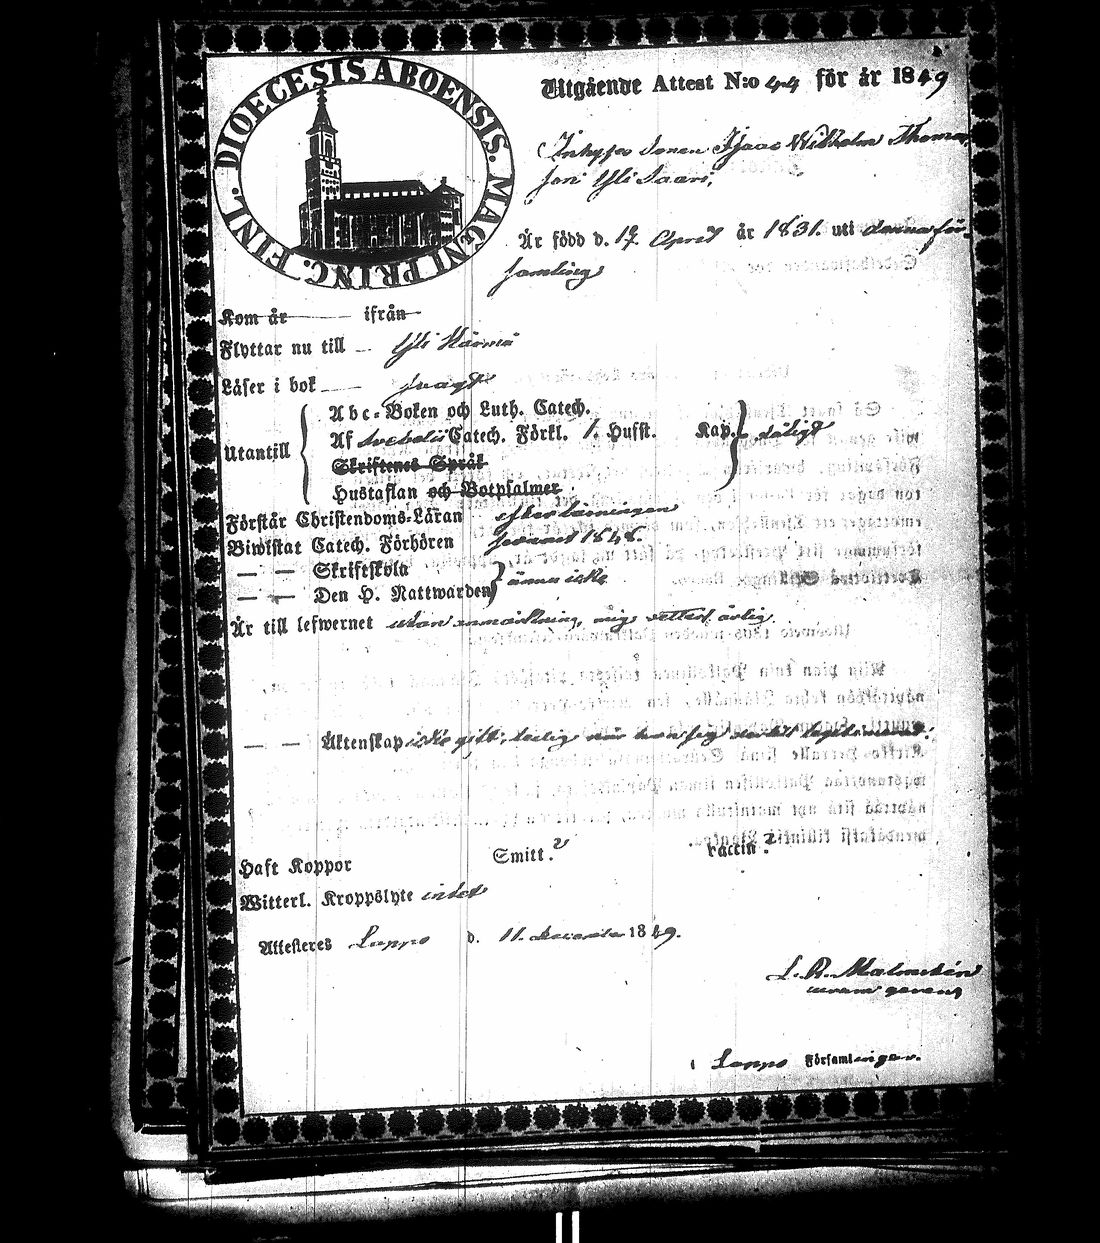 DIOECESIS ABOENSIS. MAGNI PRINC. FINL.
Utgående Attest N:o 44 för år 1849
Inhyses sonen Isaac Wilhelm Thomas
son Yli Saari,
Är född d. 17 April år 1831. uti denna för-
samling
Kom år ifrån
Flyttar nu till Yli Härmä
Läser i bok svagt
Utantill
Abc-Boken och Luth. Catech.
Af Svebelii Catech. Förkl. 1. Hufst. Kap. dåligt
Skriftenes Språk
Hustaflan och Botpsalmer
Förstår Christendoms-Läran efter läsningen
Biwistat Catech. Förhören 1848.
— — Skriftskola
— — Den H. Nattwarden ännu icke
Är till lefwernet utan anmärkning, mig vetterl. ärlig.
— — Äktenskap icke gift; ledig
Haft Koppor Smitt.? Vaccin?
Witterl. Kroppslyte intet
Attesteras Lappo d. 11. December 1849.
L. R. Malmstén
i Lappo Församlingar.